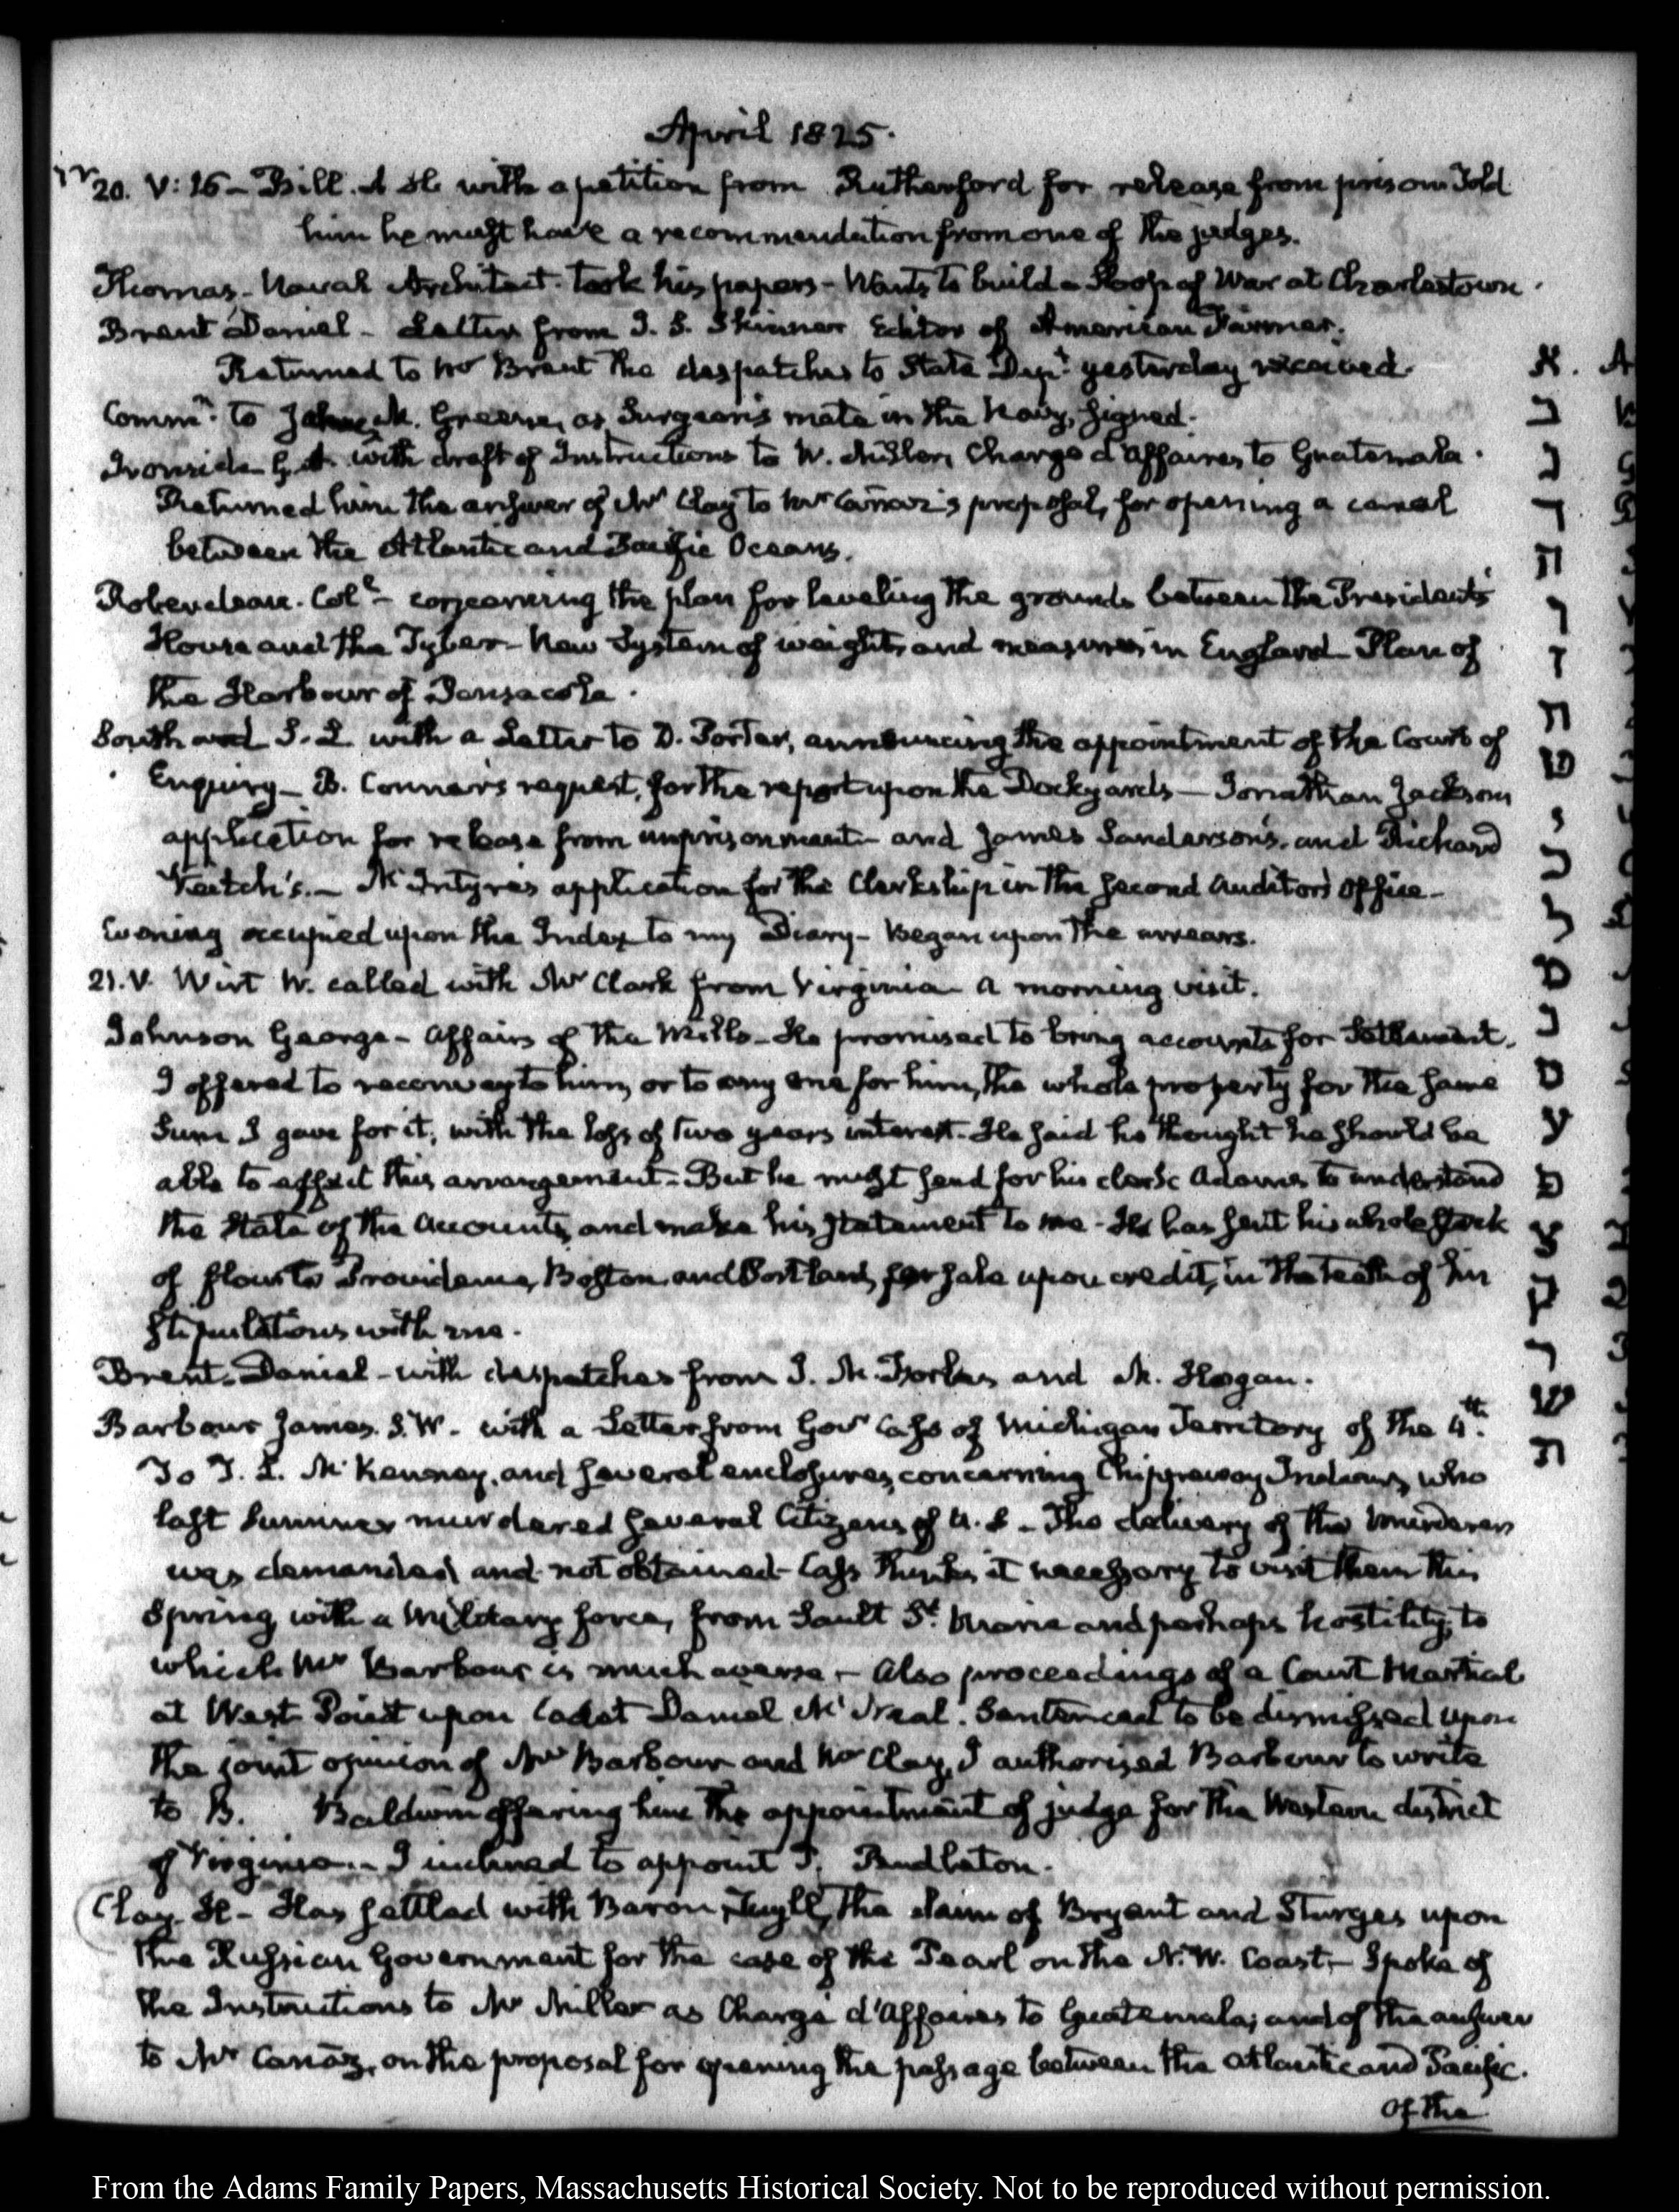 April 1825.
IV
20. V:15 - Bill. with a petition from Rutherford for release from prison Told
him he must have a recommendation from one of the judges.
Thomas - Naval Architect - took his papers - Wants to build a Sloop of War at Charlestown.
Brent Daniel - Letter from J. S. Skinner Editor of American Farmer.
Returned to Mr Brent the despatches to State Dept yesterday received.
Commn to M. Greene, as Surgeon's mate in the Navy, signed.
Ironside G. with draft of Instructions to W. Miller, Chargé d'Affaires to Guatemala.
Returned him the answer of Mr Clay to Mr Cañaz's proposal, for opening a canal
between the Atlantic and Pacific Oceans.
Roberdeau. Coll - concerning the plan for leveling the grounds between the Presidents'
House and the Tyber - New System of weights and measures in England - Plan of
the Harbour of Pensacola.
Southard S. L with a Letter to D. Porter, announcing the appointment of the Court of
Enquiry - Conner's request, for the report upon the Dockyards - Jonathan Jacksons
application for release from imprisonment - and James Sanderson's, and Richard
Veitch's. - McIntyre's application for the Clerkship in the second Auditor's Office -
Evening occupied upon the Index to my Diary - Began upon the arrears.
21. V. Wirt W. called with Mr Clark from Virginia a morning visit.
Johnson George - Affairs of the Mills - He promised to bring accounts for Settlement.
I offered to reconvey to him, or to any one for him, the whole property for the same
Sum I gave for it, with the loss of two years interest - He said he thought he should be
able to effect this arrangement - But he must send for his clerk Adams to understand
the State of the Accounts, and make his statement to me - He has sent his whole stock
of flour to Providence, Boston and Portland, for sale upon credit, in the teeth of his
stipulations with me.
Brent. Daniel - with despatches from J. M. Forbes and M. Hogan.
Barbour James. S. W. - with a Letter from Govr Cass of Michigan Territory of the 4th.
To T. L. McKenney, and several enclosures, concerning Chippeway Indians, who
last Summer murdered several Citizens of U. S - The delivery of the murderers
was demanded and not obtained - Cass thinks it necessary to visit them this
Spring, with a Military force, from Sault St. Marie and perhaps hostility, to
which Mr Barbour is much averse - Also proceedings of a Court Martial
at West Point upon Cadet Daniel McNeal. Sentenced to be dismissed upon
the joint opinion of Mr Barbour and Mr Clay, I authorized Barbour to write
to B. Baldwin offering him the appointment of judge for the Western district
of Virginia. - I inclined to appoint P. Pendleton.
Clay. H - Has settled with Baron Tuyll, the claim of Bryant and Sturges upon
the Russian Government for the case of the Pearl on the N. W. Coast - Spoke of
the Instructions to Mr Miller as Chargé d'Affaires to Guatemala; and of the answer
to Mr Cañaz, on the proposal for opening the passage between the Atlantic and Pacific.
of the
א.
ב
ג
ד
ה
ו
ז
ח
ט
י
כ
ל
מ
נ
ס
ע
פ
צ
ק
ר
ש
ת
From the Adams Family Papers, Massachusetts Historical Society. Not to be reproduced without permission.